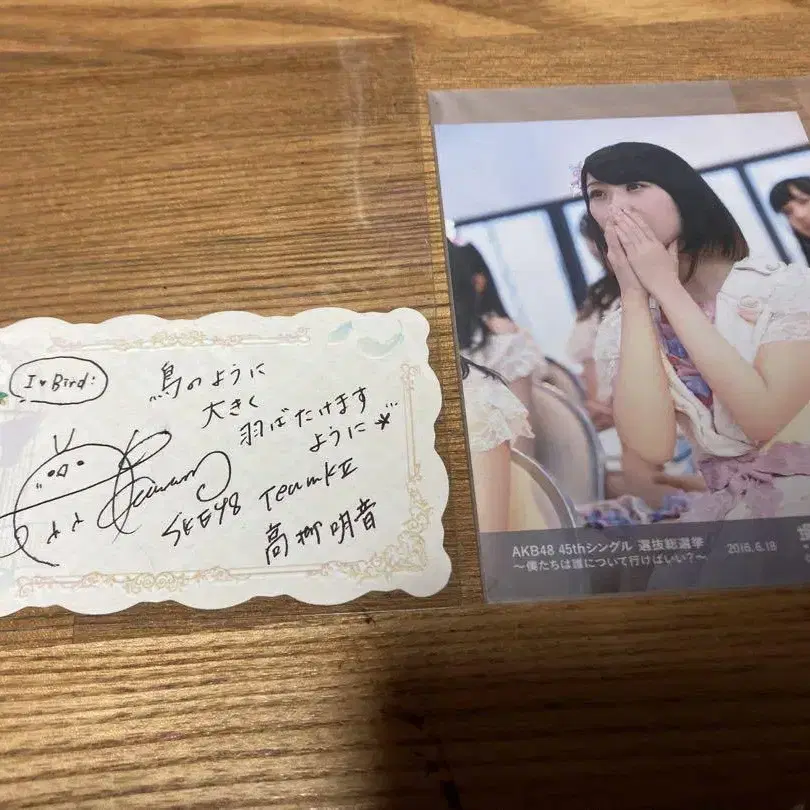 I ♥ Bird:
鳥のように
大きく
羽ばたけます…
ように
SKE48 TeamKII
高柳明音
AKB48 45thシングル 選抜総選挙
〜僕たちは誰について行けばいい?〜
2016.6.18